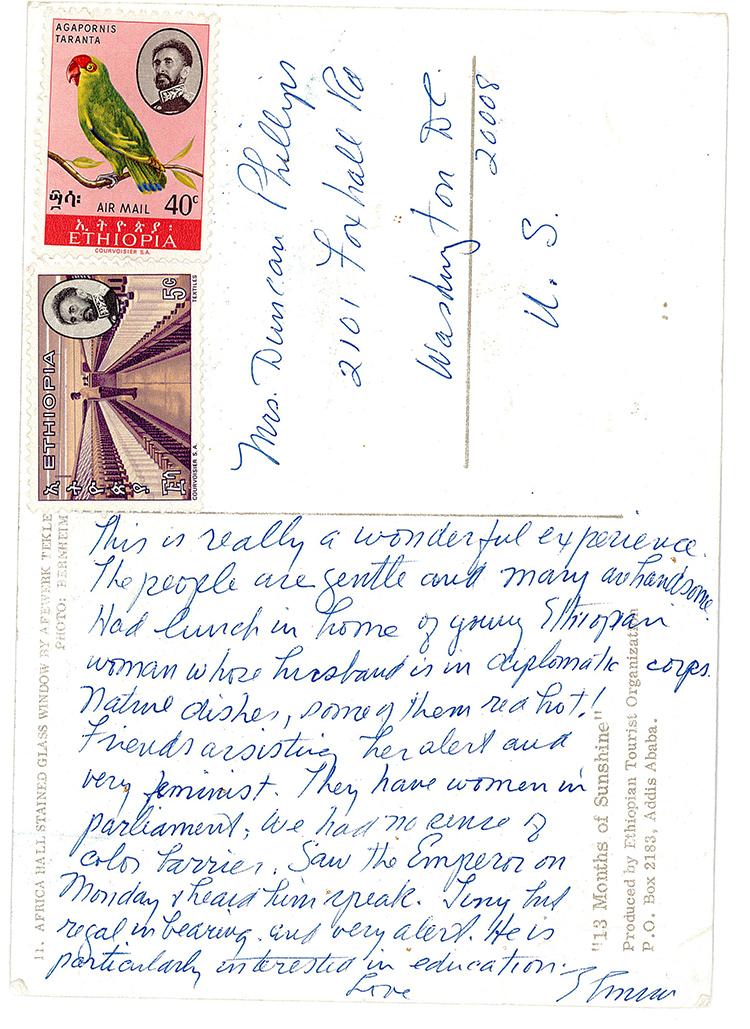 AGAPORNIS
TARANTA
፵ሳ፡
AIR MAIL 40c
ኢትዮጵያ፡
ETHIOPIA
COURVOISIER S.A.
ETHIOPIA
5c
TEXTILES
ኢትዮጵያ
COURVOISIER S.A.
Mrs. Duncan Phillips
2101 Foxhall Rd
Washington DC.
20008
U. S.
This is really a wonderful experience.
The people are gentle and many are handsome.
Had lunch in home of young Ethiopian
woman whose husband is in diplomatic corps.
Native dishes, some of them red hot!
Friends assisting her alert and
very feminist. They have women in
parliament. We had no sense of
color barrier. Saw the Emperor on
Monday & heard him speak. Tiny but
regal in bearing and very alert. He is
particularly interested in education.
Love
11. AFRICA HALL STAINED GLASS WINDOW BY AFEWERK TEKLE
PHOTO: BERNHEIM
"13 Months of Sunshine"
Produced by Ethiopian Tourist Organization
P.O. Box 2183, Addis Ababa.